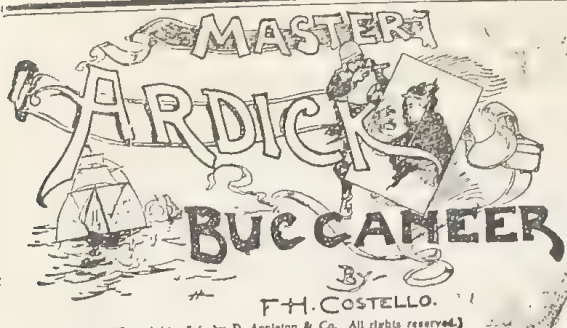 MASTER
ARDICK
BUCCANEER
BY
F·H·COSTELLO.
by D. Appleton & Co. All rights reserved.]